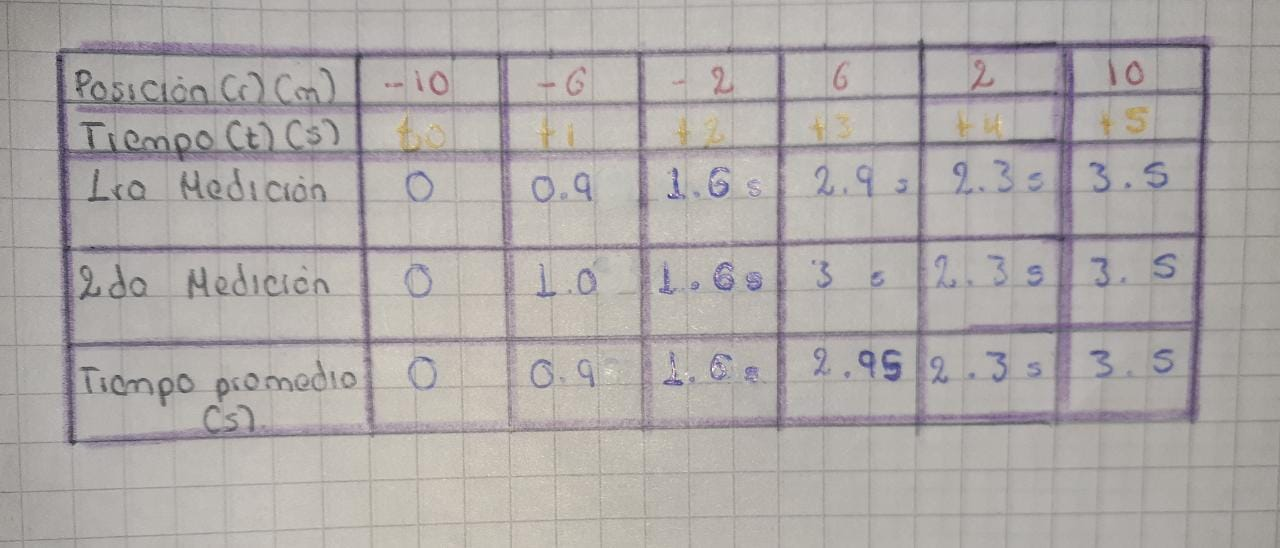 Posición (r) (m) -10 -6 -2 6 2 10
Tiempo (t) (s) t0 t1 t2 t3 t4 t5
1ra Medición 0 0.9 1.6 s 2.9 s 2.3 s 3.5
2da Medición 0 1.0 1.6 s 3 s 2.3 s 3.5
Tiempo promedio 0 0.9 1.6 s 2.95 2.3 s 3.5
(s).